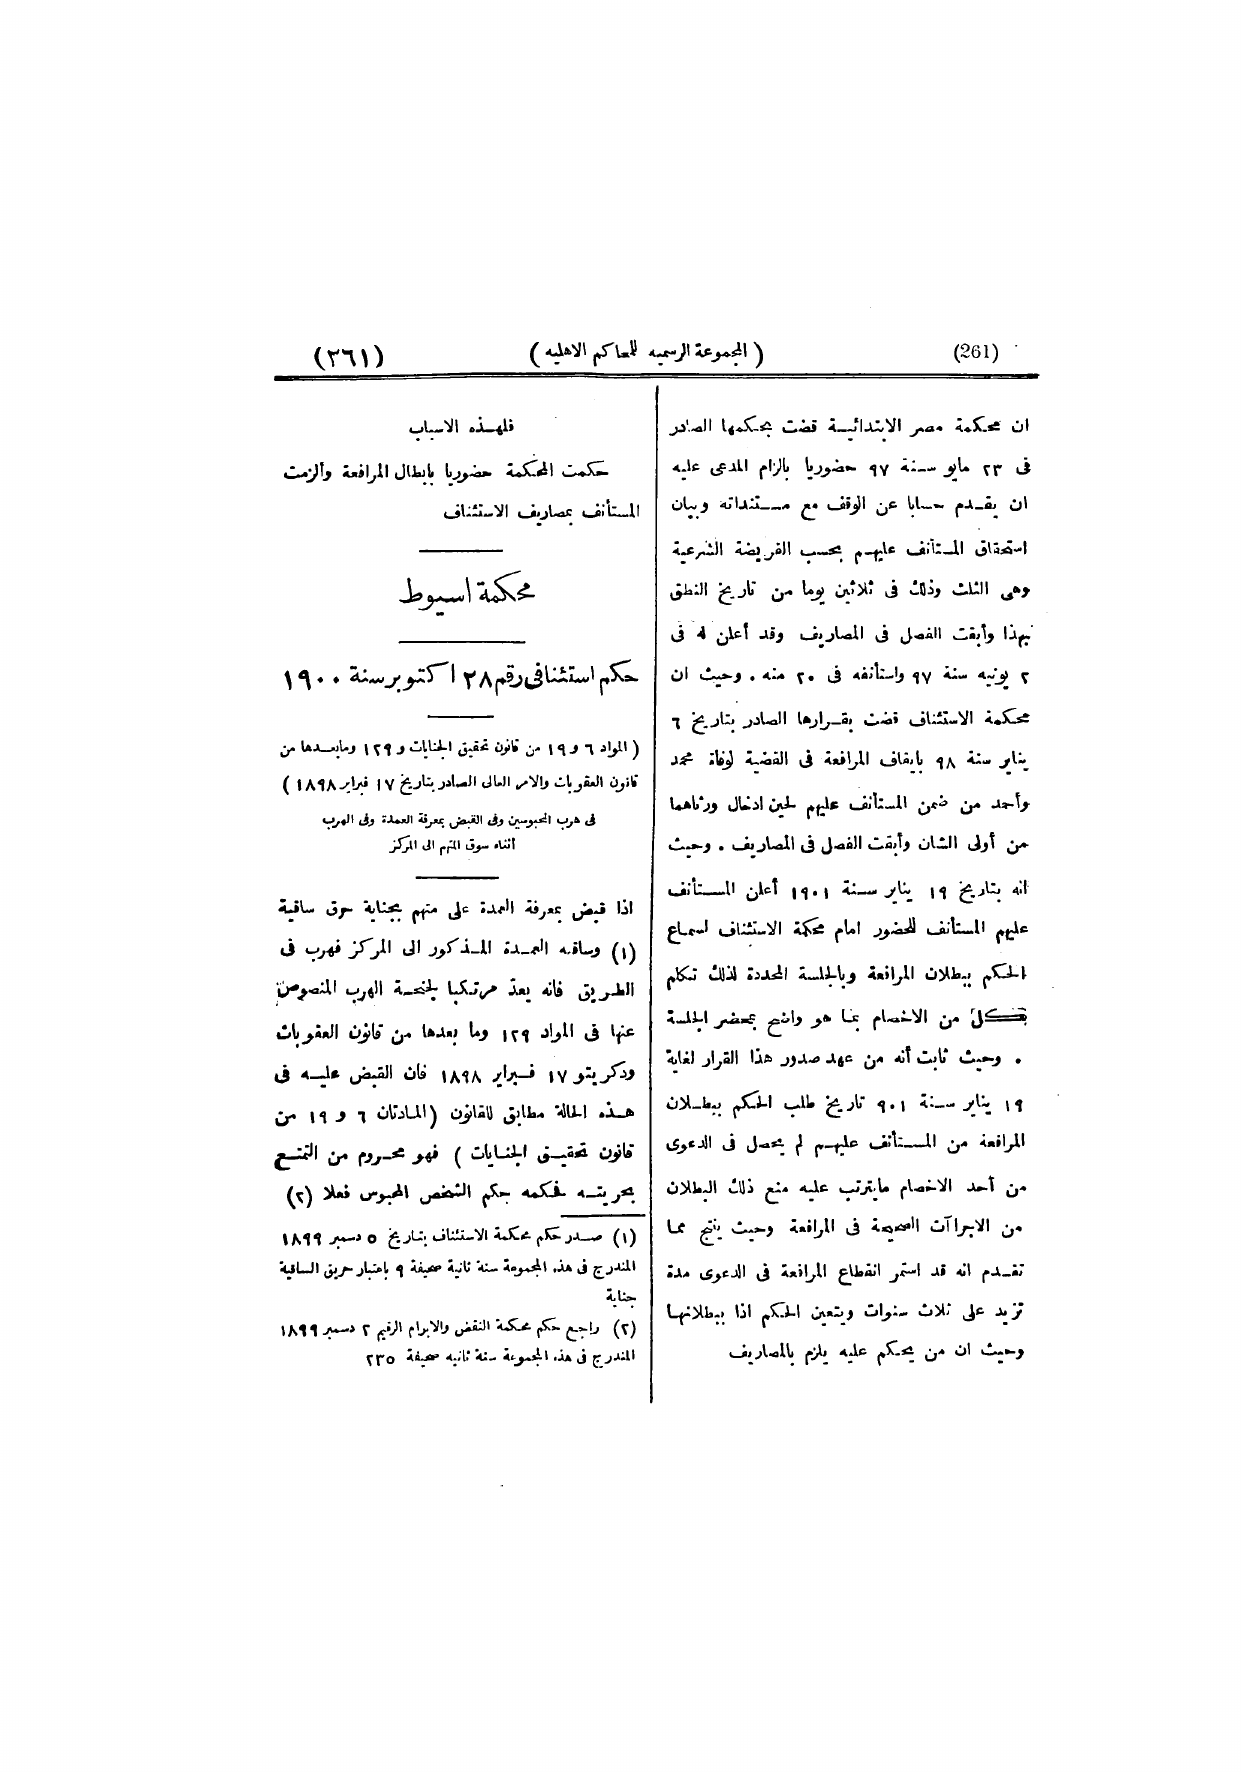 (261) ( المجموعة الرسميه للمحاكم الاهليه ) (٢٦١)
ان محكمة مصر الابتدائية قضت بحكمها الصادر
فى ٢٣ مايو سنة ٩٧ حضوريا بالزام المدعى عليه
ان يقدم حسابا عن الوقف مع مستنداته وبيان
استحقاق المستأنف عليهم بحسب الفريضة الشرعية
وهى الثلث وذلك فى ثلاثين يوما من تاريخ النطق
بهذا وأبقت الفصل فى المصاريف وقد أعلن له فى
٢ يونيه سنة ٩٧ واستأنفه فى ٢٠ منه . وحيث ان
محكمة الاستئناف قضت بقرارها الصادر بتاريخ ٦
يناير سنة ٩٨ بايقاف المرافعة فى القضية لوفاة محمد
وأحمد من ضمن المستأنف عليهم لحين ادخال ورثاهما
من أولى الشان وأبقت الفصل فى المصاريف . وحيث
انه بتاريخ ١٩ يناير سنة ١٩٠١ أعلن المستأنف
عليهم المستأنف للحضور امام محكمة الاستئناف لسماع
الحكم ببطلان المرافعة وبالجلسة المحددة لذلك تكلم
كل من الاخصام بما هو واضح بمحضر الجلسة
. وحيث ثابت أنه من عهد صدور هذا القرار لغاية
١٩ يناير سنة ٩٠١ تاريخ طلب الحكم ببطلان
المرافعة من المستأنف عليهم لم يحصل فى الدعوى
من أحد الاخصام مايترتب عليه منع ذلك البطلان
من الاجراآت الصحيحة فى المرافعة وحيث ينتج مما
تقدم انه قد استمر انقطاع المرافعة فى الدعوى مدة
تزيد على ثلاث سنوات ويتعين الحكم اذا ببطلانها
وحيث ان من يحكم عليه يلزم بالمصاريف
فلهذه الاسباب
حكمت المحكمة حضوريا بابطال المرافعة وألزمت
المستأنف بمصاريف الاستئناف
محكمة اسيوط
حكم استئنافى رقم ٢٨ اكتوبر سنة ١٩٠٠
( المواد ٦ و ١٩ من قانون تحقيق الجنايات و ١٢٩ ومابعدها من
قانون العقوبات والامر العالى الصادر بتاريخ ١٧ فبراير ١٨٩٨ )
فى هرب المحبوسين وفى القبض بمعرفة العمدة وفى الهرب
أثناء سوق المتهم الى المركز
اذا قبض بمعرفة العمدة على متهم بجناية حرق ساقية
(١) وساقه العمدة المذكور الى المركز فهرب فى
الطريق فانه يعد مرتكبا لجنحة الهرب المنصوص
عنها فى المواد ١٢٩ وما بعدها من قانون العقوبات
ودكريتو ١٧ فبراير ١٨٩٨ فان القبض عليه فى
هذه الحالة مطابق للقانون (المادتان ٦ و ١٩ من
قانون تحقيق الجنايات ) فهو محروم من التمتع
بحريته فحكمه حكم الشخص المحبوس فعلا (٢)
(١) صدر حكم محكمة الاستئناف بتاريخ ٥ دسمبر ١٨٩٩
المندرج فى هذه المجموعة سنة ثانية صحيفة ٩ باعتبار حريق الساقية
جناية
(٢) راجع حكم محكمة النقض والابرام الرقيم ٢ دسمبر ١٨٩٩
المندرج فى هذه المجموعة سنة ثانيه صحيفة ٢٣٥